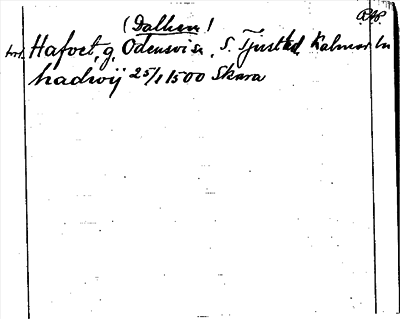 (Dalhem)
Hafvet, g. Odensvi sn, S. Tjusts hd, Kalmar ln
hadwij 25/1 1500 Skara